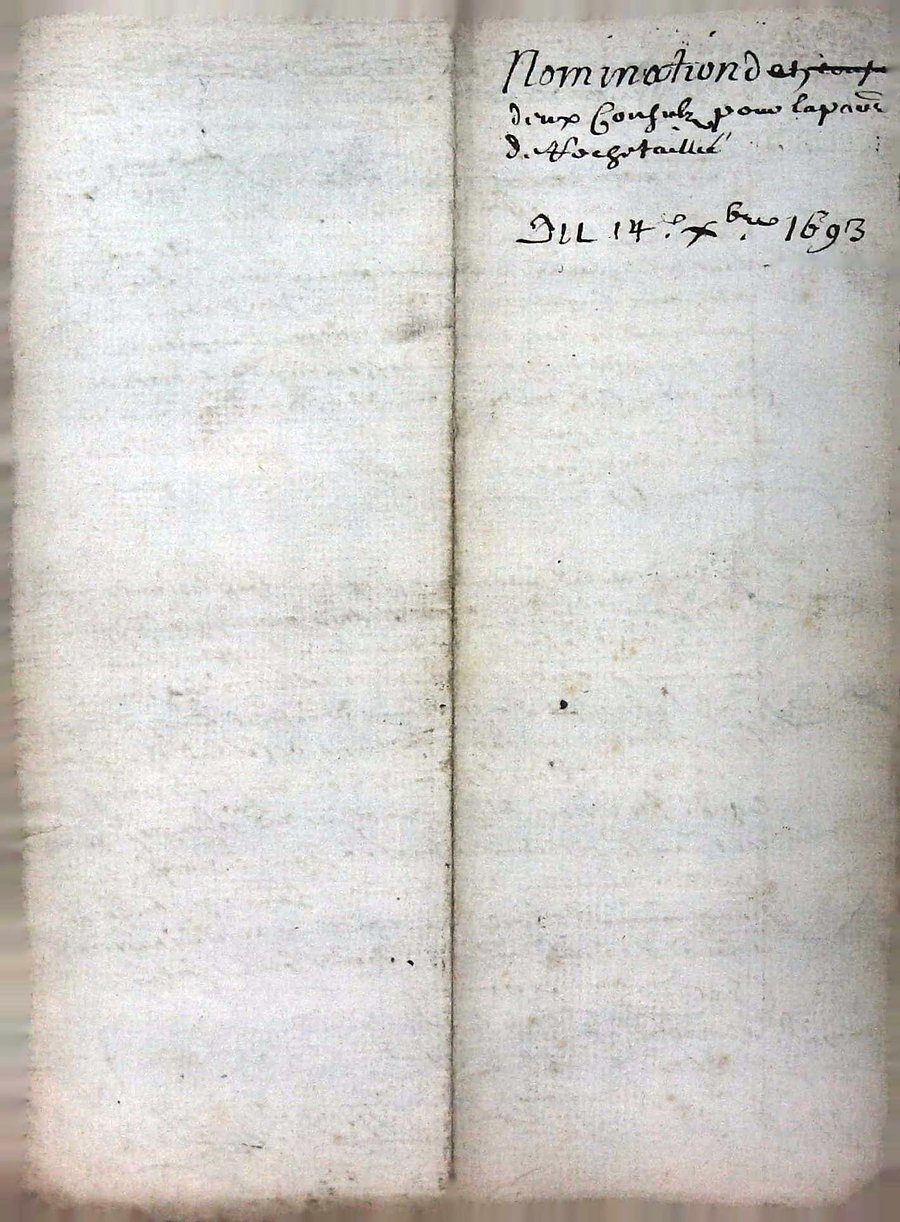 Nomination d
deux Consulz pour la parre
de Rochetaillée
Du 14e xbre 1693